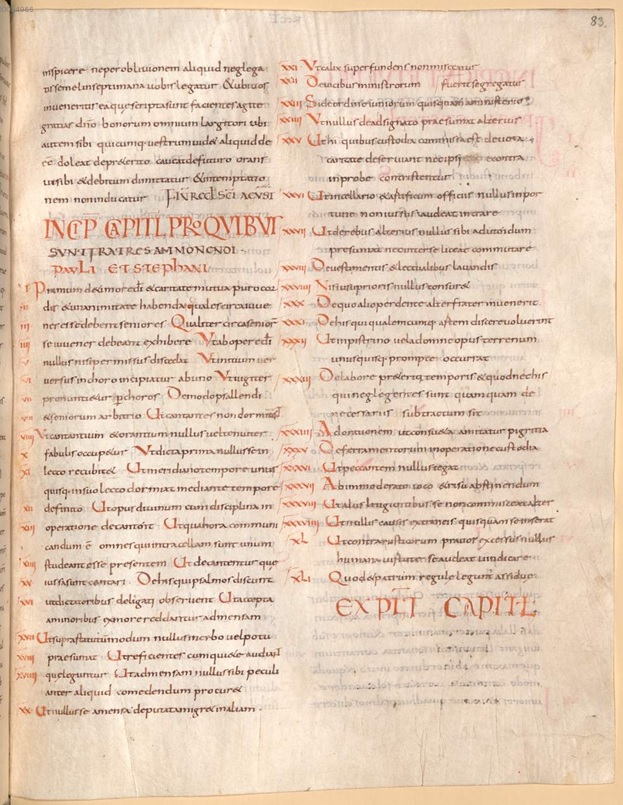 83.
inspicere ne per oblivionem aliquid neglega
tis semel in septimana vobis legatur & ubi vos
inveneritis ea que scripta sunt facientes agite
gratias dno bonorum omnium largitori ubi
autem sibi quicumque vestrum videt aliquid de
e&#x113; doleat de pr&erito caveat de futuro orans
ut sibi & debitum dimittatur & in temptatio
nem non inducatur
INCP CAPITL PRE QVIBVS
SUNT FRATRES AMMONENDI
PAULI ET STEPHANI
I Primum de amore di & caritate mutua puro cor
II dis & unanimitate habenda quales circa iuve
III nes esse debent seniores Qualiter circa seniores
IIII se iuvenes debeant exhibere Ut ab opere di
V nullus nisi permissus discedat Ut initium ver
VI versus in choro incipiatur ab uno Ut iugiter
VII pronuntietur per choros De modo psallendi
VIII & seniorum arbitrio Ut cantantes non dormitent
VIIII Ut cantantium & orantium nullus velt
X fabulis occupetur Ut dicta prima nullus se in
XI lecto recubet Ut meridiano tempore unus
quisq; in suo lecto dormiat mediante tempore
XII definito Ut opus divinum cum disciplina in
XIII operatione decantent Ut qua hora communi
candum e omnes qui intra cellam sunt unum
XIIII studeant esse presentem Ut decantentur que
XV iussa sunt cantari De his qui psalmos discunt
XVI ut dictatoribus delegati observent Ut accepta
a maioribus ex more reddantur ad mensam
XVII Ut supra statutum modum nullus in cybo vel potu
XVIII praesumat Ut reficientes cum quiete audiant
XVIIII que leguntur Ut ad mensam nullus sibi peculi
ariter aliquid comedendum procuret
XX Ut nullus se a mensa deputata migret in aliam .
XXI Ut calix superfundens non misceatur
XXII De vicibus ministrorum fuerit segregatus
XXIII Si de ordine seniorum quisquam a ministerio
XXIIII Ut nullus de adsignato praesumat alterius
XXV Ut hi quibus custodia commissa est devota
caritate deserviant nec ipsi e contra
inprobe contristentur
XXVI Ut in cellario & artificum officiis nullus inpor
tune non iussus audeat intrare
XXVII Ut de rebus alterius nullus sibi aditos dum
praesumat nec inter se liceat commutare
XXVIII De vestimentis & lectualibus lavandis
XXVIIII Nisi suis prioris nullus conburet
XXX De quo aliò perdente alter frater invenerit
XXXI De his qui qualemcumq; artem discere voluerint
XXXII Ut in pistrino vel ad omne opus terrenum
unusquisq; prompte occurrat
XXXIII De labore praeteriti temporis & quod nec his
qui neglegentes sunt quamquam de
necessariis subtractum sit
XXXIIII Admonitionem ut consueta amittatur pigritia
XXXV De ferramentorum in operatione custodia
XXXVI Ut peccantem nullus tegat
XXXVII Ab immoderato ioco & risu abstinendum
XXXVIII Ut alus lingu tribus se non commisceat alter
XXXVIIII Ut nullus causis extraneis quisquam se inserat
XL Ut contra rusticorum pravos excessus nullus
humana virtute se audeat vindicare
XLI Quod a patrum regule legunt assidue
EXPLIT CAPITL